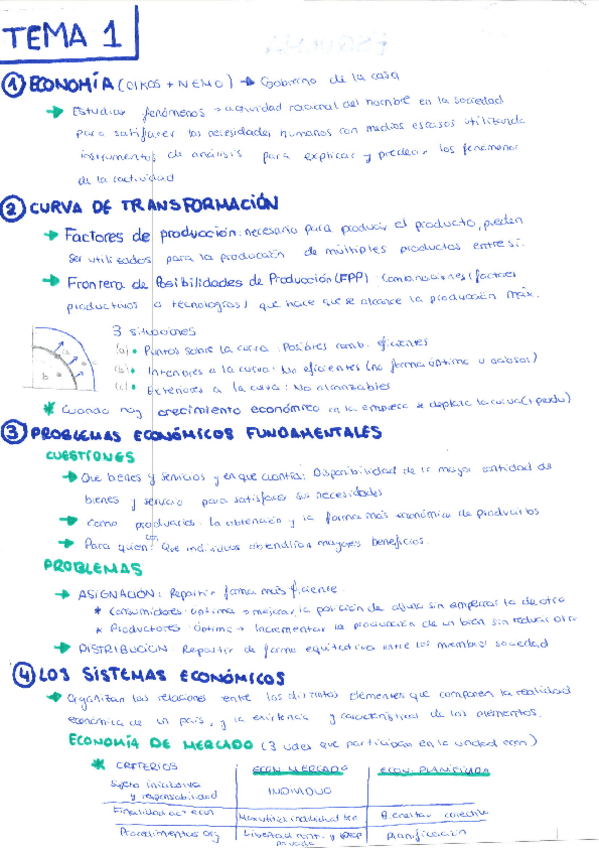 TEMA 1
① ECONOMÍA (OIKOS + NEMO) → Gobierno de la casa
→ Estudiar fenómenos → actividad racional del hombre en la sociedad
para satisfacer las necesidades humanas con medios escasos utilizando
instrumentos de análisis para explicar y predecir los fenómenos
de la
② CURVA DE TRANSFORMACIÓN
→ Factores de producción: necesario para producir el producto, pueden
ser utilizados para la producción de múltiples productos entre sí.
→ Frontera de Posibilidades de Producción (FPP): Combinaciones (factores
productivos o tecnologías) que hace que se alcance la producción máx.
3 situaciones
(a) • Puntos sobre la curva: Posibles comb. eficientes
(b) • Interiores a la curva: No eficientes (no forma óptima u ociosos)
(c) • Exteriores a la curva: No alcanzables
b
* Cuando hay crecimiento económico en la empresa se desplaza la curva
③ PROBLEMAS ECONÓMICOS FUNDAMENTALES
CUESTIONES
→ Que bienes y servicios y en que cuantía: Disponibilidad de la mayor cantidad de
bienes y servicio para satisfacer sus necesidades
→ Como producirlos: la obtención y la forma más económica de producirlos
→ Para quien: Que individuos obtendrían mayores beneficios.
PROBLEMAS
→ ASIGNACIÓN: Repartir forma más eficiente.
* Consumidores: óptima → mejorar la posición de alguna sin empeorar la de otro
* Productores: Óptima → Incrementar la producción de un bien sin reducir otro
→ DISTRIBUCIÓN: Repartir de forma equitativa entre los miembros sociedad
④ LOS SISTEMAS ECONÓMICOS
→ Organizan las relaciones entre los distintos elementos que componen la realidad
económica de un país, y la existencia y características de los elementos.
ECONOMÍA DE MERCADO (3 udes que participan en la unidad econ)
* CRITERIOS ECON MERCADO ECON. PLANIFICADA
Sujeto iniciativa
y responsabilidad INDIVIDUO
Finalidad act econ Max utilidad individual Bienestar colectivo
Procedimientos org Libertad y prop Planificación
privada